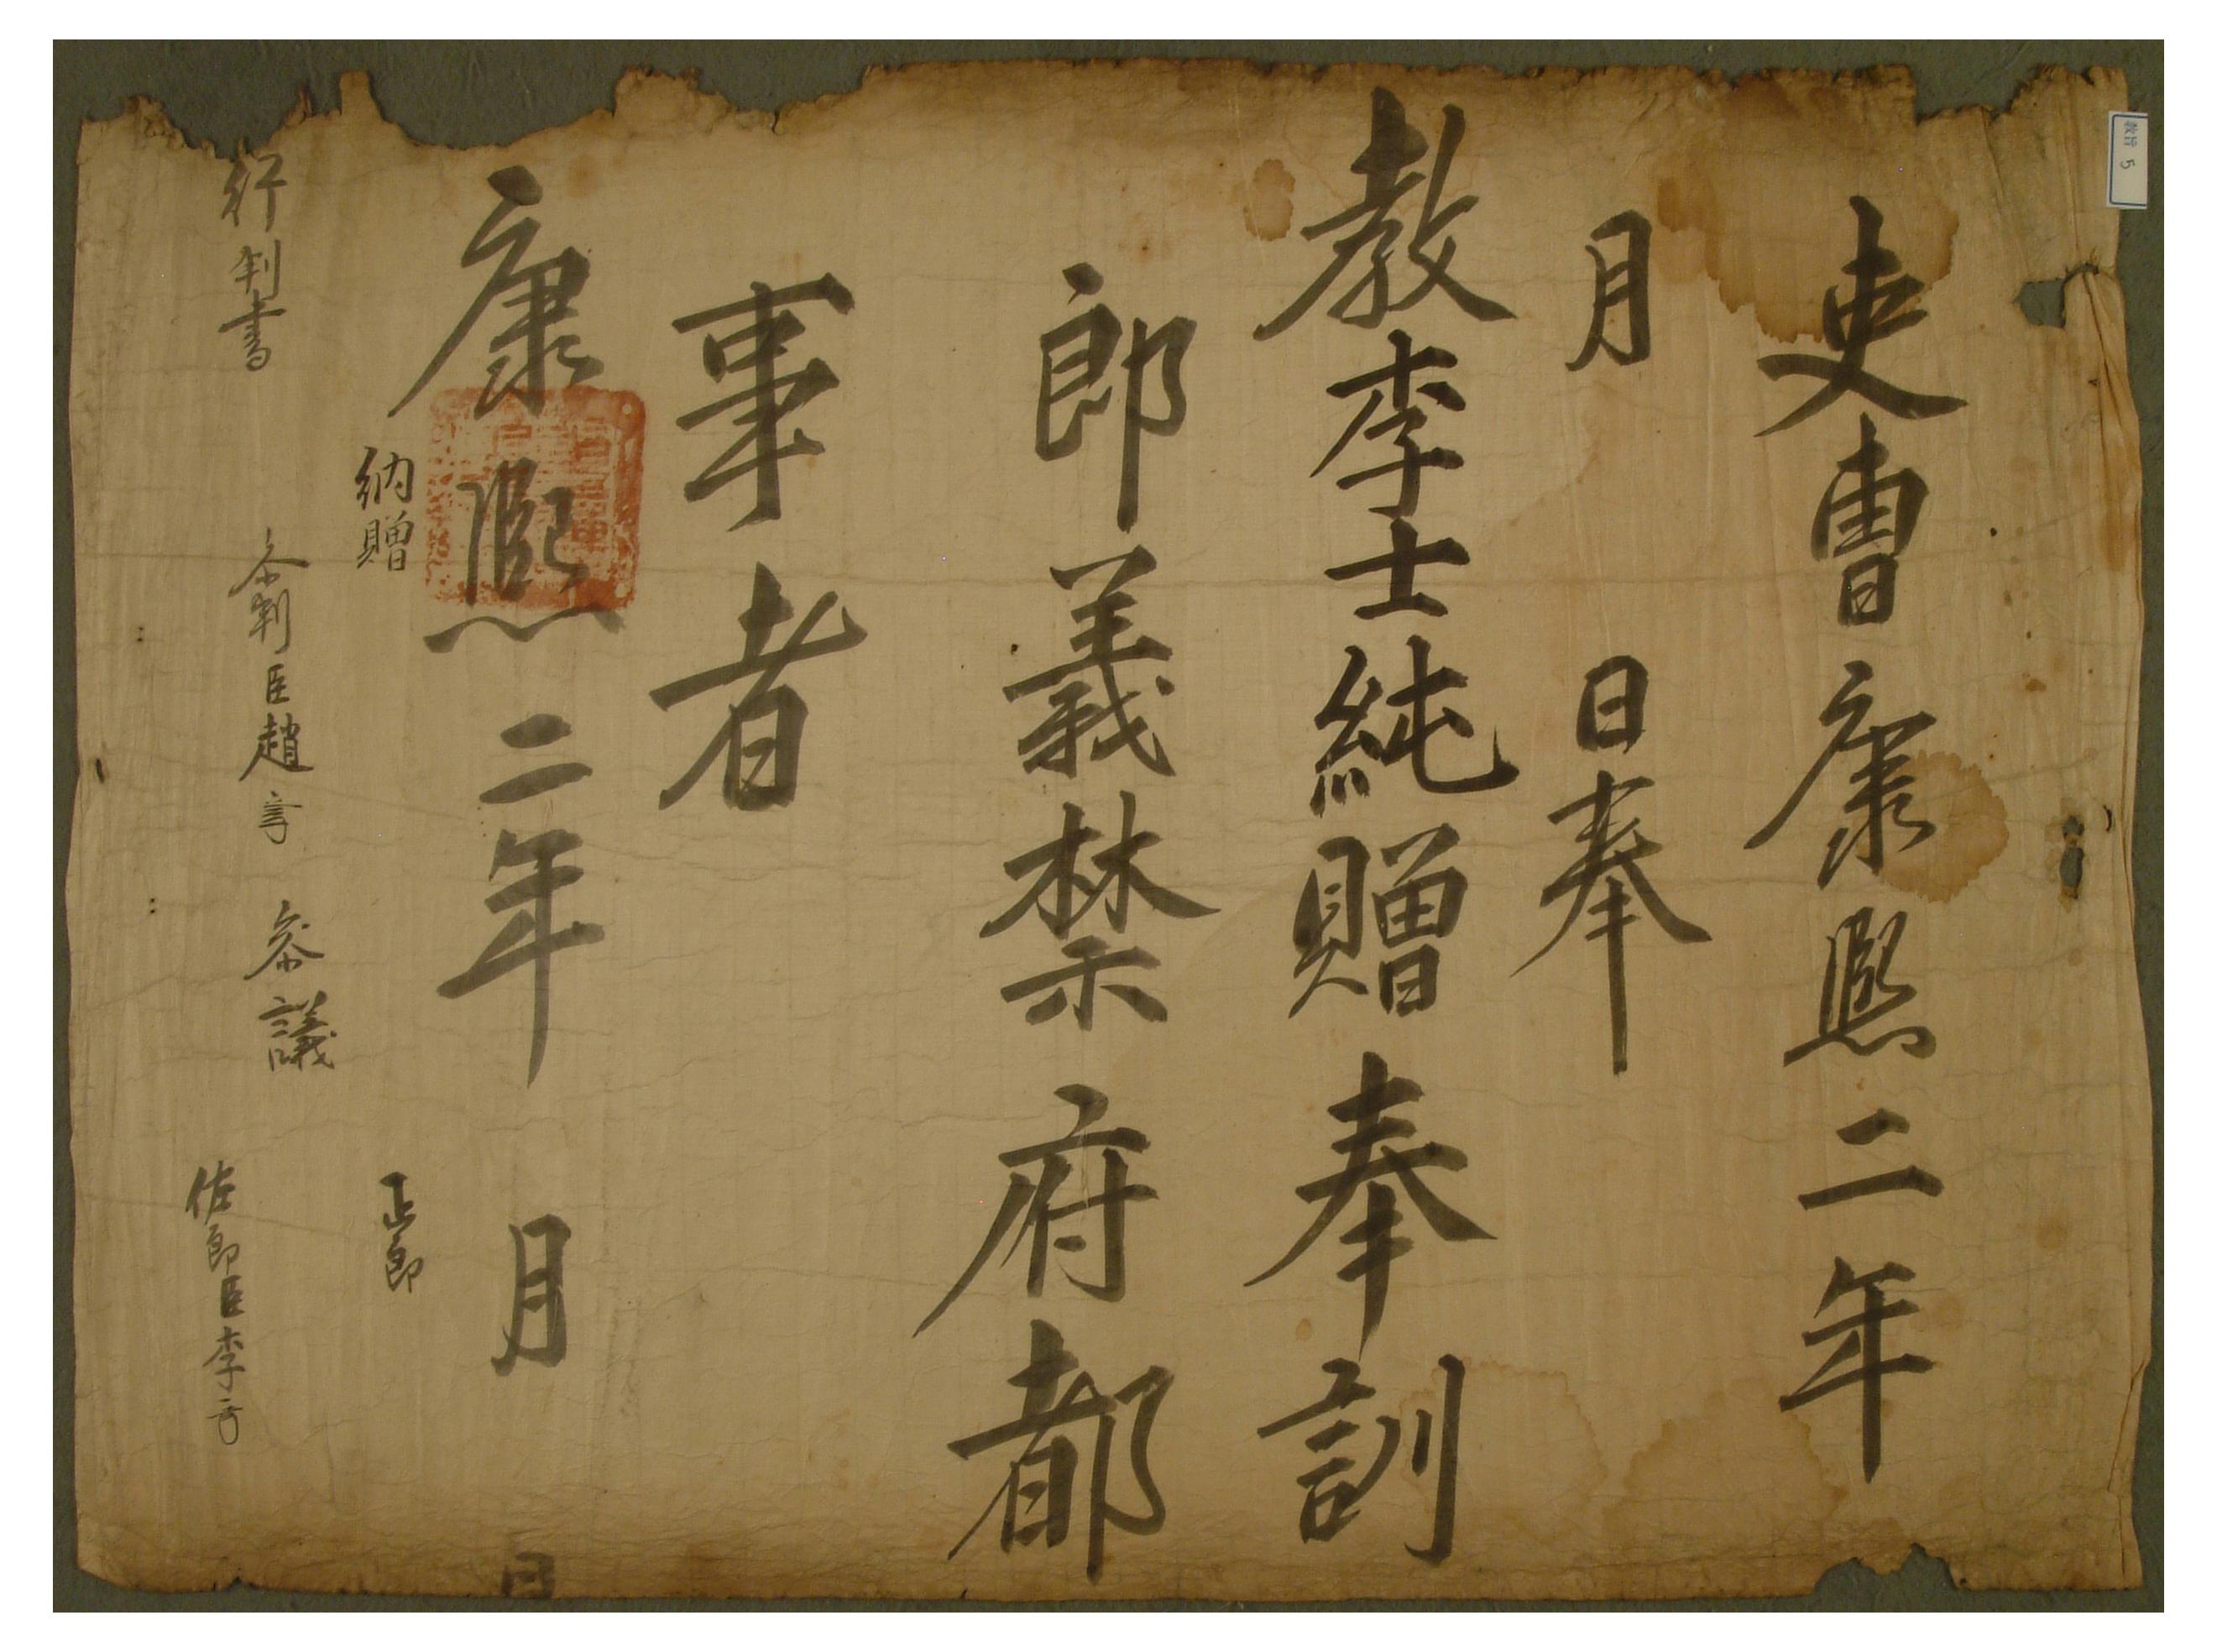 敎旨 5
吏曹康熙二年
月 日奉
敎李士純贈奉訓
郎義禁府都
事者
康熙二年 月 日
納贈
正郎
行判書 叅判臣趙 叅議
佐郎臣李